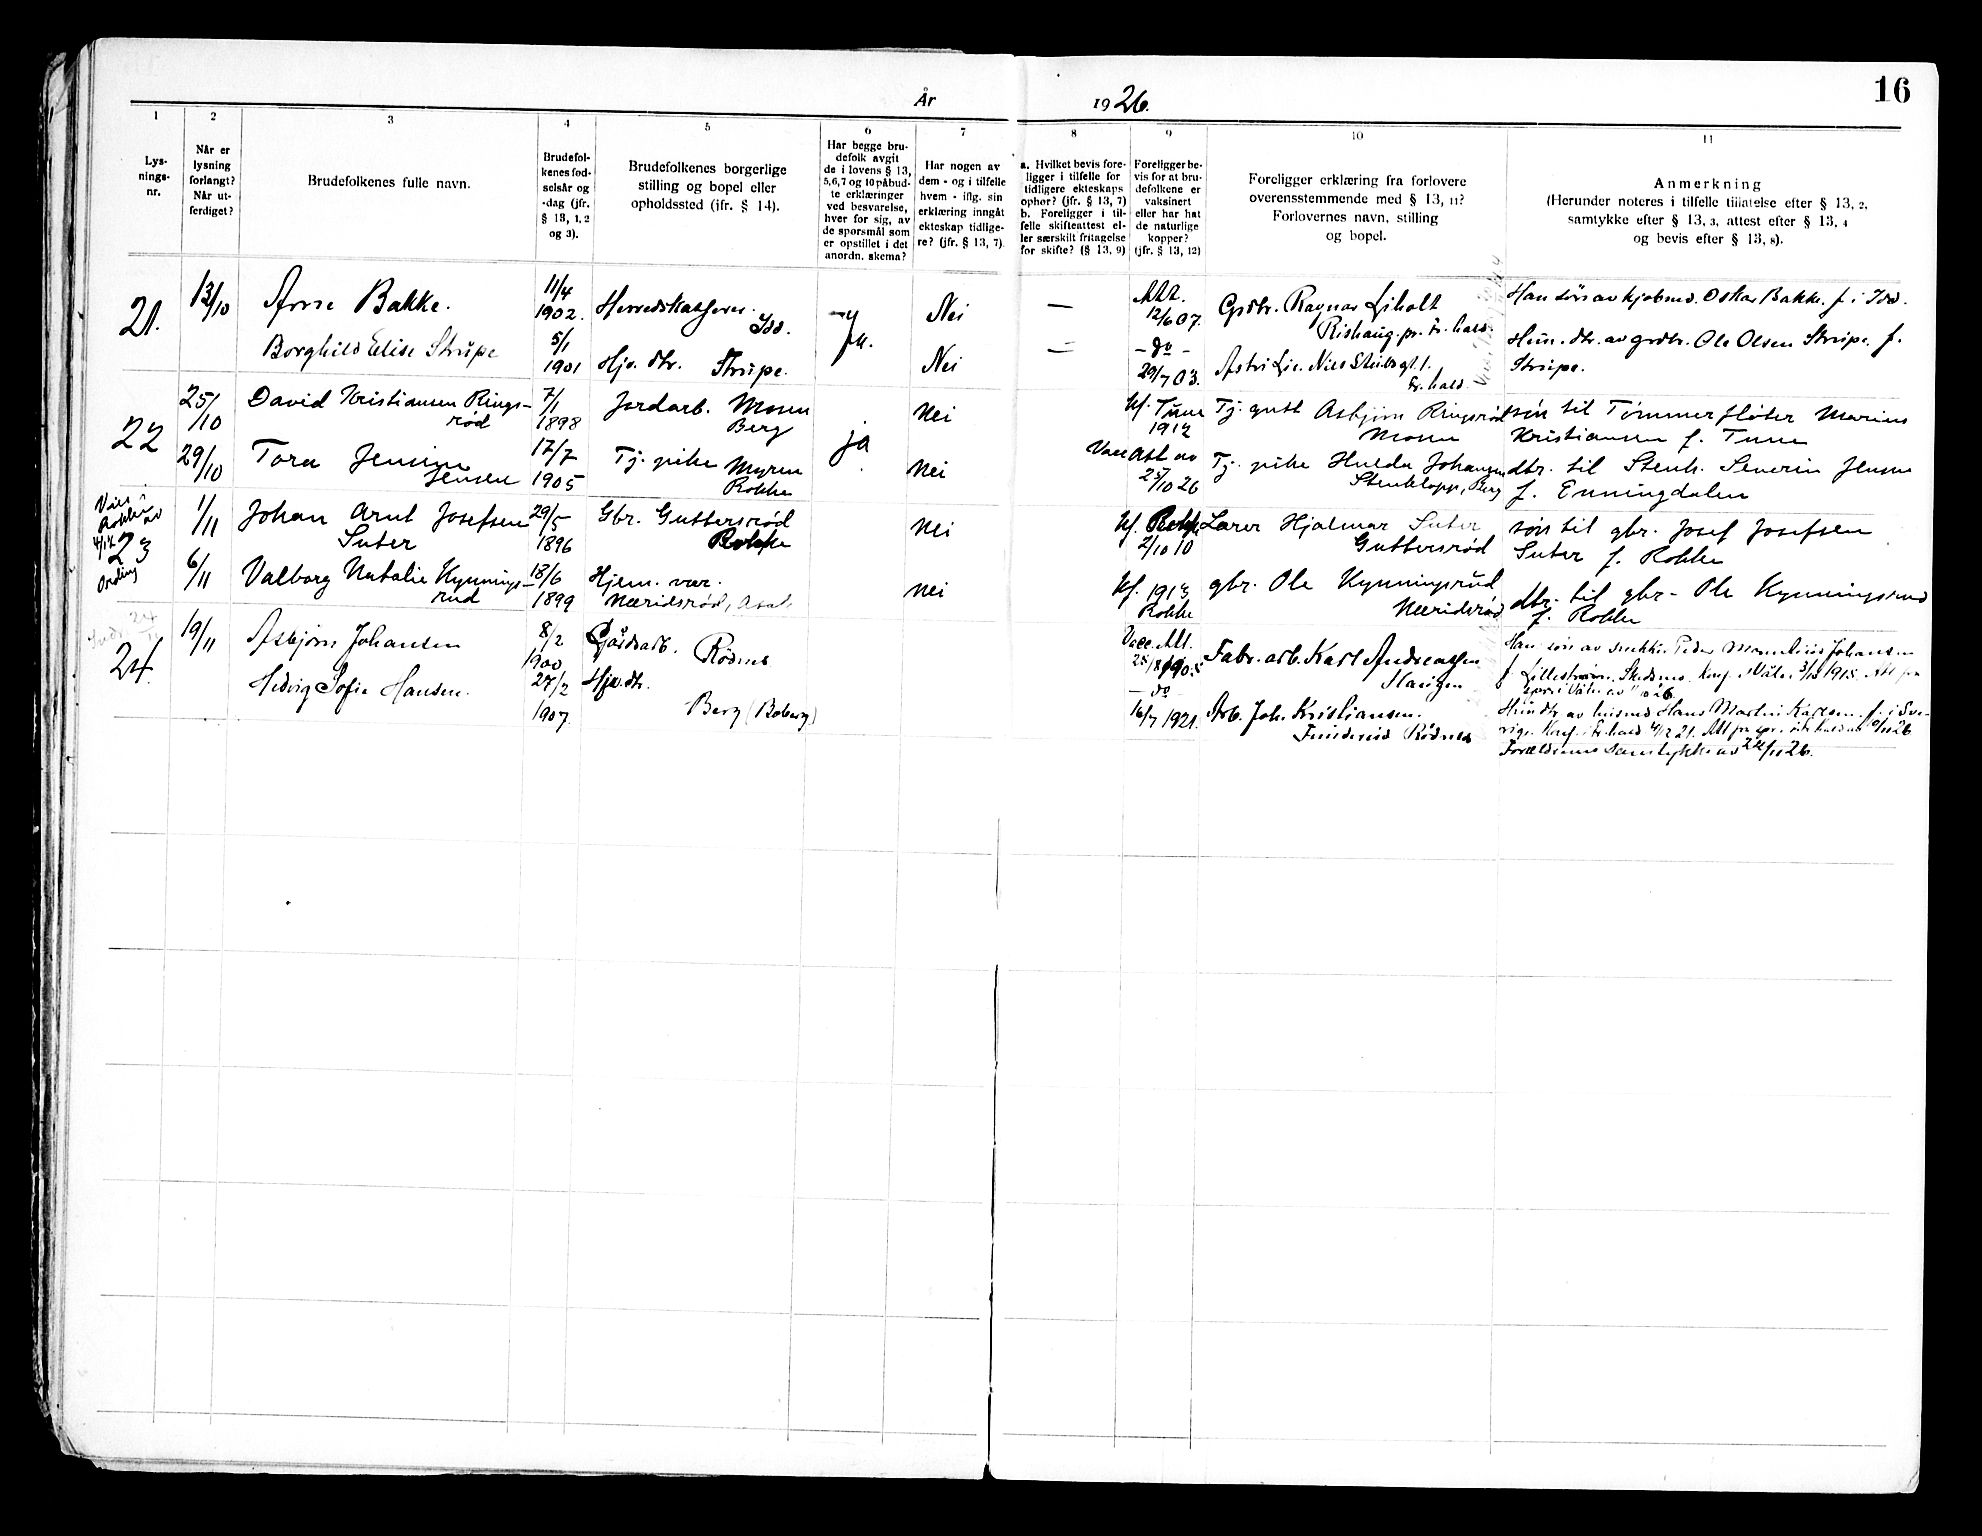 16
År 1926.
1
2
3
4
5
6
7
8
9
10
11
Lys-
nings-
nr.
Når er
lysning
forlangt?
Når ut-
ferdiget?
Brudefolkenes fulle navn.
Brudefol-
kenes fød-
selsår og
-dag (jfr.
§ 13, 1, 2
og 3).
Brudefolkenes borgerlige
stilling og bopel eller
opholdssted (jfr. § 14).
Har begge bru-
defolk avgit
de i lovens § 13,
5,6,7 og 10 påbud-
te erklæringer
ved besvarelse,
hver for sig, av
de spørsmål som
er opstillet i det
anordn. skema?
Har nogen av
dem - og i tilfelle
hvem - iflg. sin
erklæring inngått
ekteskap tidlige-
re? (jfr. § 13, 7).
a. Hvilket bevis fore-
ligger i tilfelle for
tidligere ekteskaps
ophør? (jfr. § 13, 7)
b. Foreligger i til-
felle skifteattest el-
ler særskilt fritagelse
for skifte? (§ 13, 9)
Foreligger be-
vis for at bru-
defolkene er
vaksinert
eller har hat
de naturlige
kopper?
(jfr. § 13, 12)
Foreligger erklæring fra forlovere
overensstemmende med § 13, 11?
Forlovernes navn, stilling
og bopel.
Anmerkning
(Herunder noteres i tilfelle tillatelse efter § 13, 2,
samtykke efter § 13, 3, attest efter § 13, 4
og bevis efter § 13, 8).
21.
13/10
Arne Bakke.
11/4
1902.
Herredskasserer.
Idd.
Nei
—
Att.
12/6 07.
Grdbr. Ragnar Liholt
Rishaug. pr. Fr.hald.
Han søn av Oskar Bakke. f. i Idd.
Borghild Elise Strupe
5/1
1901
Hjv. dtr. Strupe.
Nei
- do -
29/7 03.
Astri Lie. Niels
Fr.hald
Hun. dtr. av grdbr. Ole Olsen Strupe. f.
Strupe.
22
25/10
David Kristiansen Rings-
rød
7/1
1898
Jordarb. Mosen
Berg
ja
Nei
Kf. Tune
1912
Tj. gutt Asbjørn Ringsrød
Mosen
søn til Tømmerfløter Marius
Kristiansen f. Tune
29/10
Tora Jensine
Jensen
17/7
1905
Tj. pike Myren
Rokke
Nei
Vacc Att av
25/10 26
Tj. pike Hulda Johansen
Stenklopp, Berg
dtr. til Stenh. Severin Jensen
f. Enningdalen
23
1/11
Johan Arnt Josefsen
Suter
29/5
1896
Gbr. Guttersrød
Rokke
Nei
Kf. Rokke
2/10 10
Lærer Hjalmar Suter
Guttersrød
søn til gbr. Josef Josefsen
Suter f. Rokke
6/11
Valborg Natalie Kynnings-
rud
18/6
1899
Hjem. vær.
Næridsrød,
Nei
Kf. 1913
Rokke
gbr. Ole Kynningsrud
Næridsrød
dtr. til gbr. Ole Kynningsrud
f. Rokke
24.
19/11
Asbjørn Johansen
8/2
1900
Gårdsarb.
Rødnes
Vacc. Att.
Fabr. arb. Karl Andreassen
Han søn av snekker Peder Johansen
f. Lillestrøm. Skedsmo. Konf. 1915.
Hedvig Sofie Hansen.
27/2
1907.
Hjv. dtr.
Berg
- do
16/7 1921.
Arb. Joh. Kristiansen.
Rødnes
Hun dtr. av Hans Martin Karlsen. f. i Sve-
rige. Konf. i Fr.hald
Forældrenes samtykke av 22/11 26.